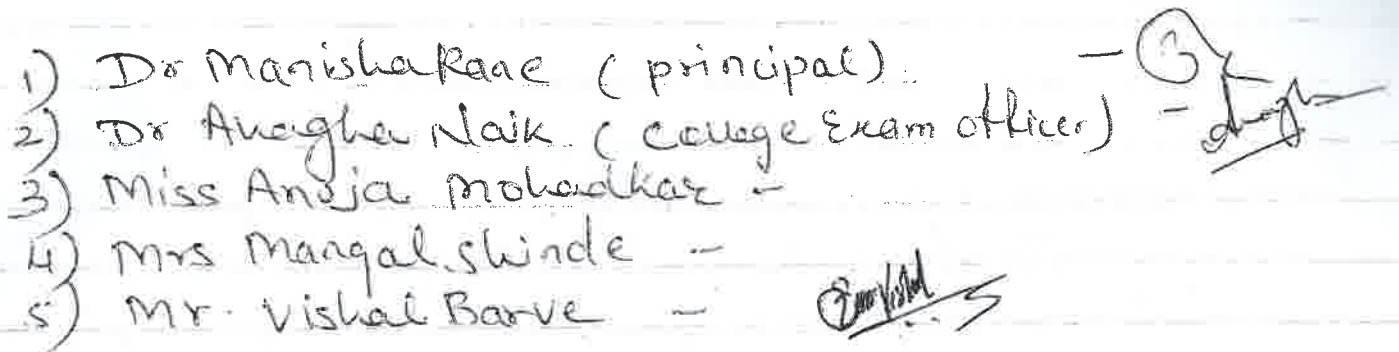 1) Dr Manisha Rane (principal) -
2) Dr Anagha Naik (College Exam officer) -
3) Miss Anuja Mohadkar -
4) Mrs Mangal Shinde -
5) Mr. Vishal Barve -